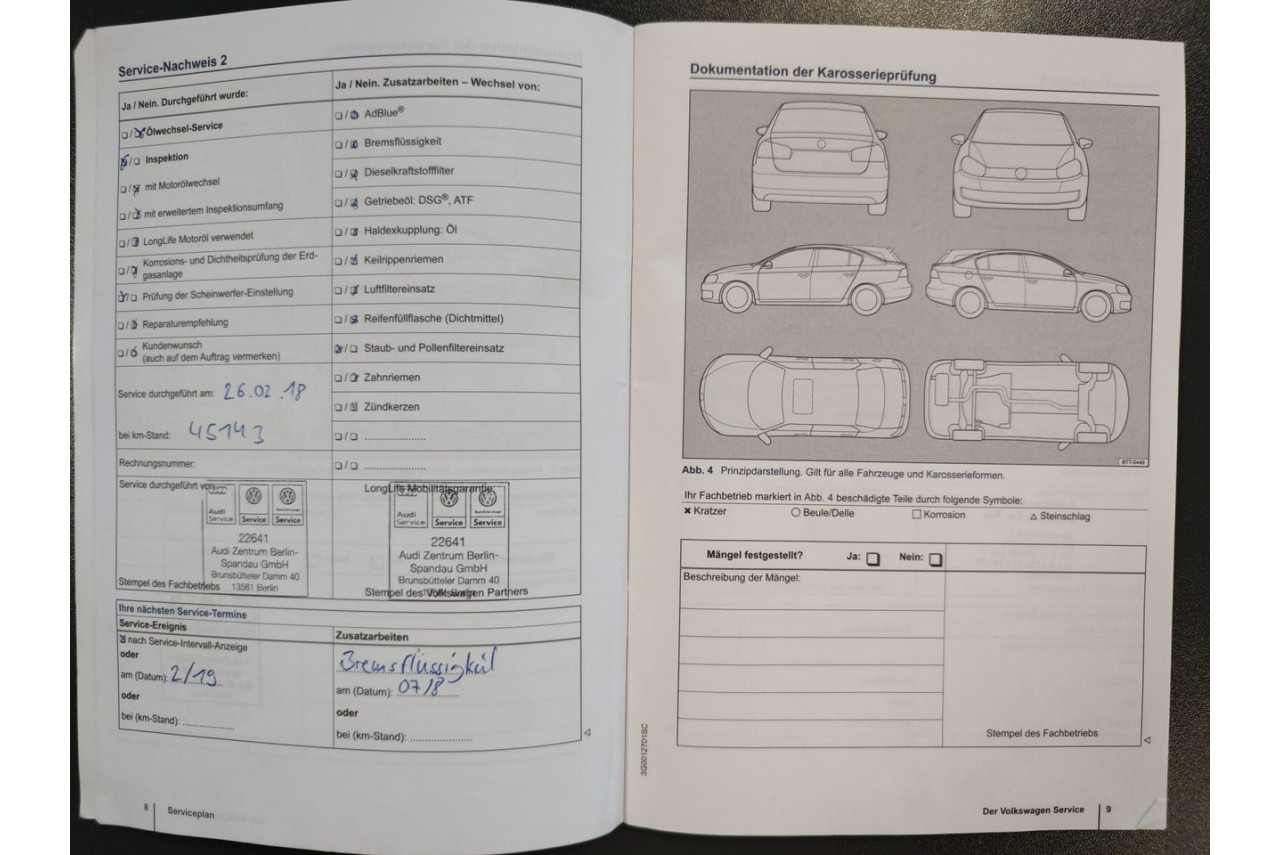 Service-Nachweis 2
Ja / Nein. Durchgeführt wurde:
Ja / Nein. Zusatzarbeiten – Wechsel von:
❏ / ❏ Ölwechsel-Service
❏ / ❏ Inspektion
❏ / ❏ mit Motorölwechsel
❏ / ❏ mit erweitertem Inspektionsumfang
❏ / ❏ LongLife Motoröl verwendet
❏ / ❏ Korrosions- und Dichtheitsprüfung der Erd-
gasanlage
❏ / ❏ Prüfung der Scheinwerfer-Einstellung
❏ / ❏ Reparaturempfehlung
❏ / ❏ Kundenwunsch
(auch auf dem Auftrag vermerken)
Service durchgeführt am: 26.02.18
bei km-Stand: 45143
Rechnungsnummer:
❏ / ❏ AdBlue®
❏ / ❏ Bremsflüssigkeit
❏ / ❏ Dieselkraftstofffilter
❏ / ❏ Getriebeöl: DSG®, ATF
❏ / ❏ Haldexkupplung: Öl
❏ / ❏ Keilrippenriemen
❏ / ❏ Luftfiltereinsatz
❏ / ❏ Reifenfüllflasche (Dichtmittel)
❏ / ❏ Staub- und Pollenfiltereinsatz
❏ / ❏ Zahnriemen
❏ / ❏ Zündkerzen
❏ / ❏ .....................
❏ / ❏ .....................
Service durchgeführt von:
Audi
Service Service Service
22641
Audi Zentrum Berlin-
Spandau GmbH
Brunsbütteler Damm 40
13581 Berlin
Stempel des Fachbetriebs
LongLife Mobilitätsgarantie:
Audi
Service Service Service
22641
Audi Zentrum Berlin-
Spandau GmbH
Brunsbütteler Damm 40
Stempel des Volkswagen Partners
Ihre nächsten Service-Termine
Service-Ereignis
❏ nach Service-Intervall-Anzeige
oder
am (Datum): 2/19
oder
bei (km-Stand): ................
Zusatzarbeiten
Bremsflüssigkeit
am (Datum): 07/8
oder
bei (km-Stand): ...................
8 Serviceplan
Dokumentation der Karosserieprüfung
BTT-0449
Abb. 4 Prinzipdarstellung. Gilt für alle Fahrzeuge und Karosserieformen.
Ihr Fachbetrieb markiert in Abb. 4 beschädigte Teile durch folgende Symbole:
✖ Kratzer ○ Beule/Delle □ Korrosion △ Steinschlag
Mängel festgestellt? Ja: ❏ Nein: ❏
Beschreibung der Mängel:
Stempel des Fachbetriebs
3G0012701SC
Der Volkswagen Service 9